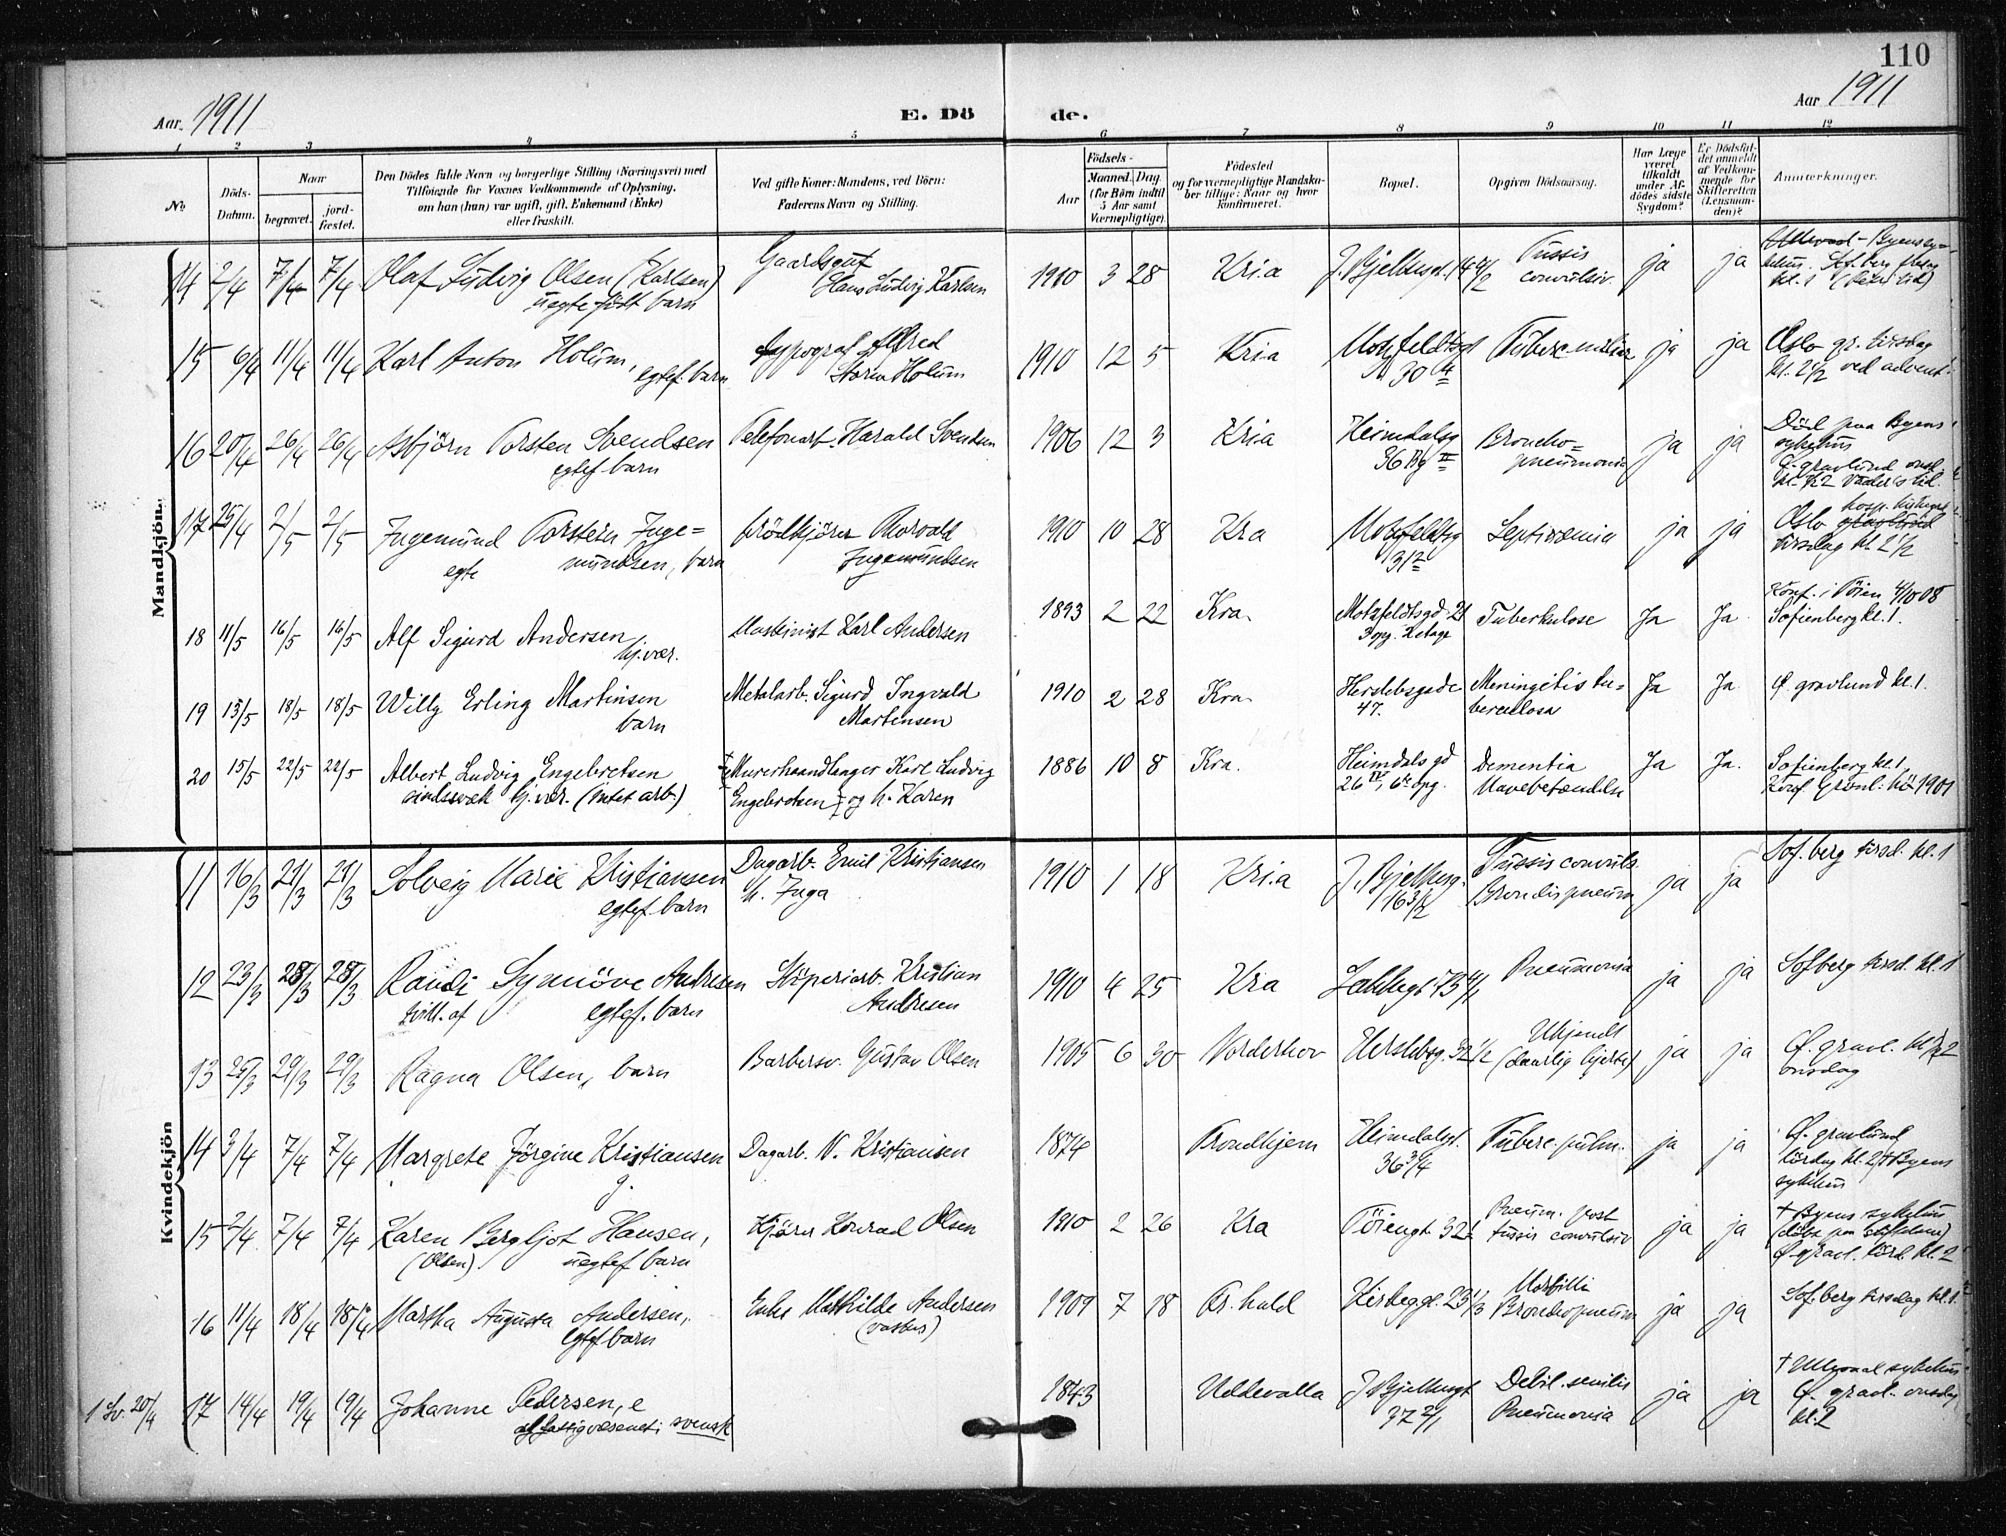 110
Aar 1911
E. Dö de.
Aar 1911
1 2 3 4 5 6 7 8 9 10 11 12
No
Döds-Datum.
Naar
begravet.
jord-fæstet.
Den Dödes fulde Navn og borgerlige Stilling (Næringsvei) med
Tilföiende för Voxnes Vedkommende af Oplysning,
om han (hun) var ugift, gift, Enkemand (Enke)
eller fraskilt.
Ved gifte Koner: Mandens, ved Börn:
Faderens Navn og Stilling.
Födsels-
Aar
Maaned. Dag
(for Börn indtil
5 Aar samt
Værnepligtige).
Födested
og for værnepligtige Mandska-
ber tillige: Naar og hvor
konfirmeret.
Bopæl.
Opgiven Dödsaarsag.
Har Læge
været
tilkaldt
under Af-
dödes sidste
Sygdom?
Er Dödsfal-
det anmeldt
af Vedkom-
mende för
Skifteretten
(Lensman-
den)?
Anmerkninger.
Mandkjön.
14 2/4 7/4 7/4 Olaf Ludvig Olsen (Karlsen) Gaardsgut 1910 3 28 Kria J. Bjelkesgt. 14 4/2 Tussis ja ja
uegte födt barn Hans Ludvig Karlsen convulsiv.
15 6/4 11/4 11/4 Karl Anton Holum, typograf Alfred 1910 12 5 Kria Motzfeldtsgt Tuberc. miliar ja ja Oslo gr. tirsdag
egtef. barn Holum 30 kl. 2 1/2 ved advent
16 20/4 26/4 26/4 Asbjörn Torsten Svendsen Telefonarb. Harald Svendsen 1906 12 3 Kria Heimdalsg Broncho= ja ja Död paa Byens
egtef. barn 36 pneumonia sykehus
Ö. gravlund onsd.
17 25/4 2/5 2/5 Ingemund Torstein Inge= Brödkjörer Thorvald 1910 10 28 Kra Motzfeldtsg Septicæmia ja ja Oslo
egte mundsen, barn Ingemundsen 31 tirsdag kl 2 1/2
18 11/5 16/5 16/5 Alf Sigurd Andersen Maskinist Karl Andersen 1893 2 22 Kra. Motzfeldtsgd 21 Tuberkulose Ja Ja. Konf. i Töien 4/10 08
hj. vær. 3 opg. 2 etage Sofienberg kl. 1.
19 13/5 18/5 18/5 Willy Erling Martinsen Metalarb. Sigurd Ingvald 1910 2 28 Kra. Herslebsgade Meningitis tu= Ja Ja. Ö. gravlund kl. 1.
barn Martinsen 47. berculosa
20 15/5 22/5 22/5 Albert Ludvig Engebretsen Murerhaandlanger Karl Ludvig 1886 10 8 Kra. Heimdalsgd Dementia Ja Ja. Sofienberg kl. 1
aandssvak hj. vær. (intet arb.) Engebretsen og h. Karen 26 IV, 6te opg. Mavebetændelse Konf. Grönl. 1901
Kvindekjön
11 16/3 21/3 21/3 Solveig Marie Kristiansen Dagarb. Emil Kristiansen 1910 1 18 Kria J. Bjelkesg. Tussis convuls. ja ja Sof.berg tirsd. kl. 1
egtef. barn h. Inga 16 3/2
12 23/3 28/3 28/3 Randi Synnöve Andresen Stöperiarb. Kristian 1910 4 25 Kra Pneumonia ja ja Sofberg tirsd. kl. 1
tvill. af egtef. barn Andresen
13 25/3 29/3 29/3 Ragna Olsen, barn Barbersv. Gustav Olsen 1905 6 30 Norderhov Herslebsg. 32 1/2 Ukjendt ja ja Ö. gravl.
(daarlig hjerte) onsdag
14 3/4 7/4 7/4 Margrete Jörgine Kristiansen Dagarb. N. Kristiansen 1874 Trondhjem Heimdalsgt. Tuberc. pulm. ja ja Ö. gravlund
g. 36 3/4 lördag kl. 2 † Byens
sykehus
15 2/4 7/4 7/4 Karen Bergljot Hansen, Kjörer Konrad Olsen 1910 2 26 Kra Töiengt. 32 Pneum. post ja ja † Byens sykehus
(Olsen) uegtef barn tussis convulsiv
Ö. gravl. lörd. kl. 2
16 11/4 18/4 18/4 Martha Augusta Andersen, Enke Mathilde Andersen 1909 7 18 Fr.hald 23 1/3 Morbilli ja ja Sof.berg tirsdag kl. 1
egtef barn Bronchopneum.
17 14/4 19/4 19/4 Johanne Pedersen, e 1843 Uddevalla J Bjelkesgt Debil. senilis ja ja † Ullevaal sykehus
af fattigvæsenet; svensk 37 2/1 Pneumonia Ö. gravl. onsdag
kl. 2
1 Sv. 20/4